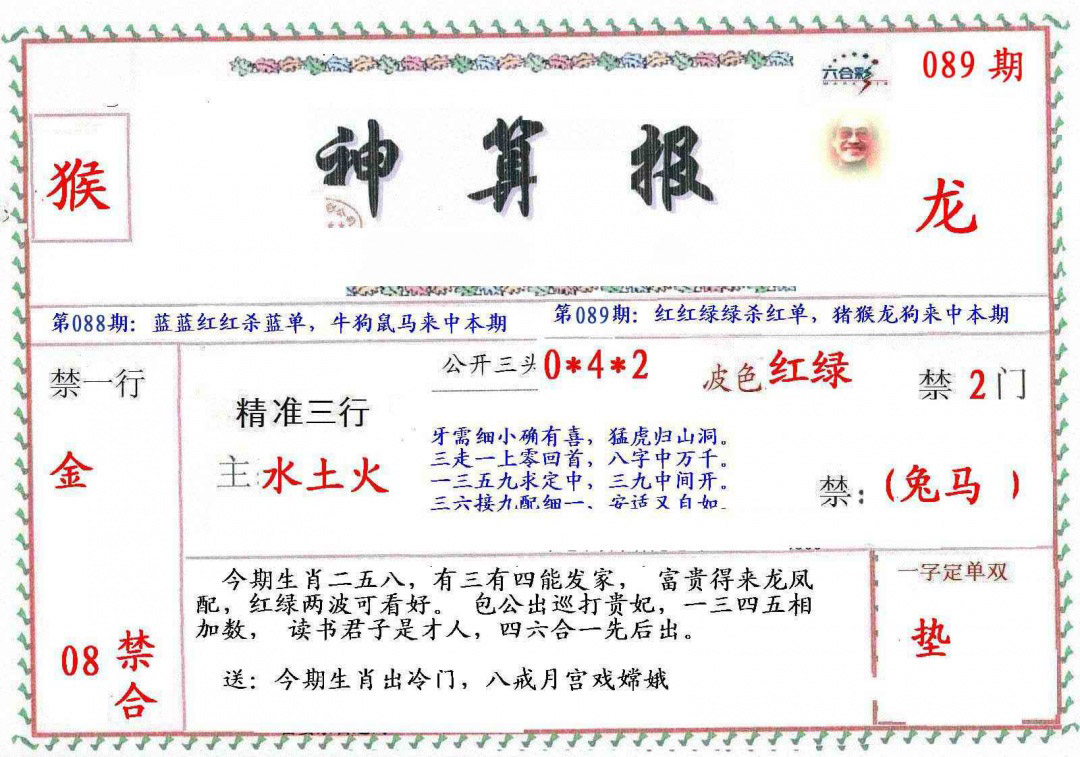 089 期
六合彩
猴
神算报
龙
第088期：蓝蓝红红杀蓝单，牛狗鼠马来中本期
第089期：红红绿绿杀红单，猪猴龙狗来中本期
禁一行
金
精准三行
主:水土火
公开三头0*4*2
波色红绿
禁2门
牙需细小确有喜，猛虎归山洞。
三走一上零回首，八字中万千。
一三五九求定中，三九中间开。
三六接九配细一、安适又自如.
禁:(兔马 )
08禁合
今期生肖二五八，有三有四能发家， 富贵得来龙凤
配，红绿两波可看好。 包公出巡打贵妃，一三四五相
加数， 读书君子是才人，四六合一先后出。
送：今期生肖出冷门，八戒月宫戏嫦娥
一字定单双
垫